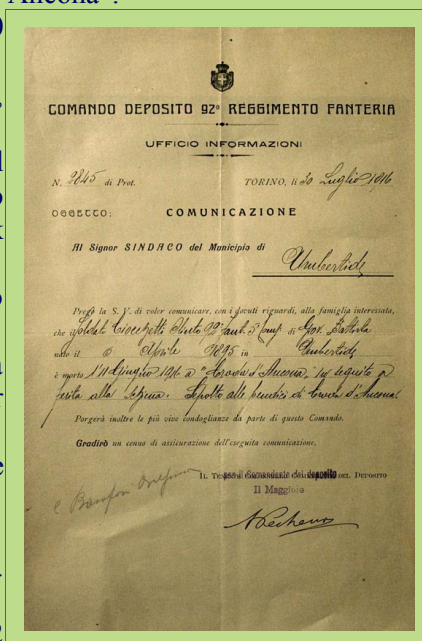 Ancona".
COMANDO DEPOSITO 92° REGGIMENTO FANTERIA
UFFICIO INFORMAZIONI
N. 9845 di Prot. TORINO, li 20 Luglio 1916
OGGETTO: COMUNICAZIONE
Al Signor SINDACO del Municipio di
Umbertide
Prego la S. V. di voler comunicare, con i dovuti riguardi, alla famiglia interessata,
che il Soldato 92° Fant. 5ª Comp. di Gov. Battista
nato il Aprile 1895 in Umbertide
è morto l'11 Giugno 1916 a "Croda d'Ancona" in seguito a
ferita alla Sepolto alle pendici di Croda d'Ancona.
Porgerà inoltre le più vive condoglianze da parte di questo Comando.
Gradirò un cenno di assicurazione dell'eseguita comunicazione.
IL DEL DEPOSITO
Il Maggiore